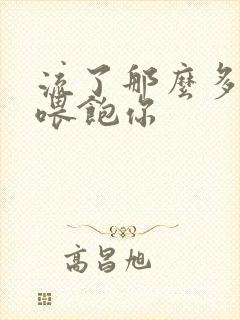 流了那麼多
喂飽你
高昌旭